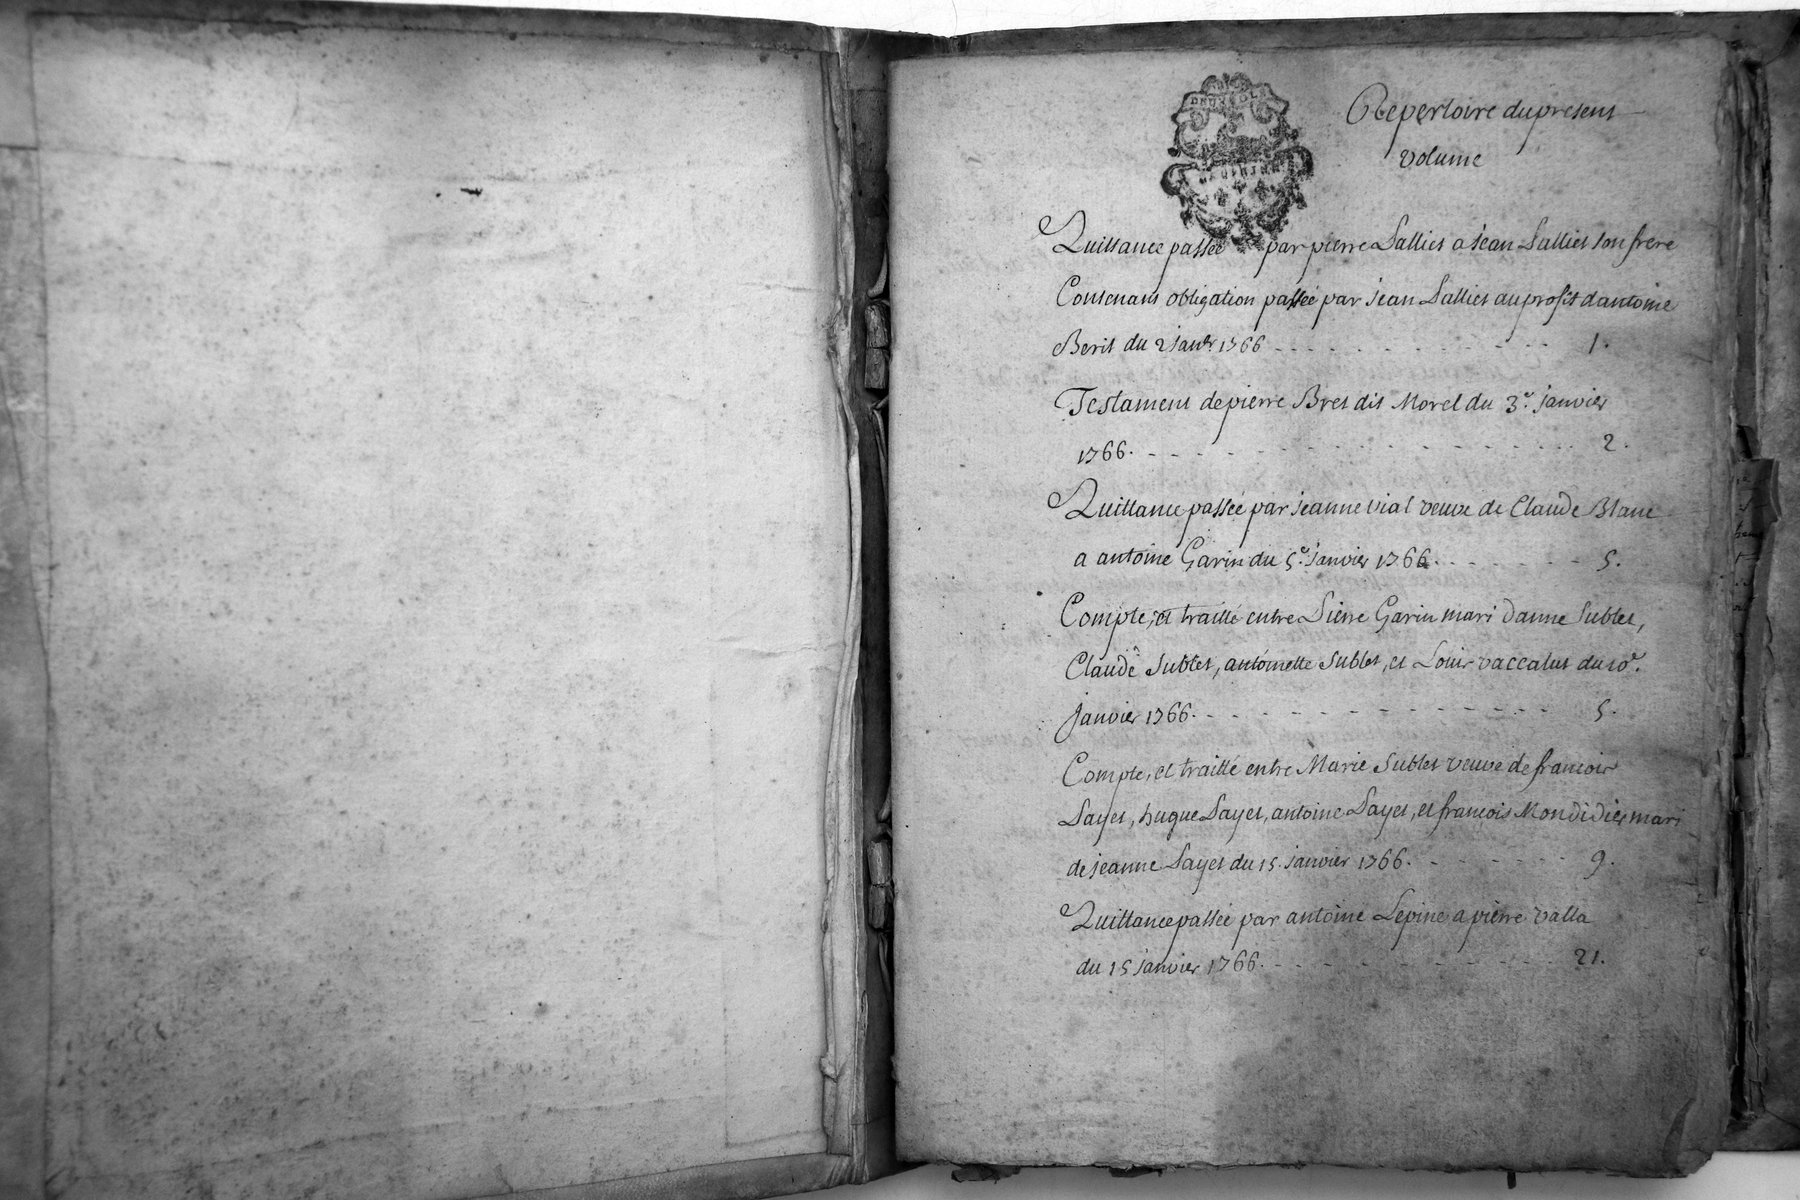 DEUX SOLS
Repertoire du present
volume
Quittance passée par pierre Lalliet a jean Lalliet son frere
Contenant obligation passée par jean Lalliet au profit dantoine
Berit du 2 janvr 1766 1.
Testament de pierre Bret dit Morel du 3e. janvier
1766. 2.
Quittance passée par jeanne vial veuve de Claude Blanc
a antoine Garin du 5e. janvier 1766. 5.
Compte, et traitté entre Pierre Garin mari danne Sublet,
Claude Sublet, antoinette Sublet, et Louis vaccalut du 10e.
janvier 1766. 5.
Compte, et traitté entre Marie Sublet veuve de francois
Layet, hugue Layet, antoine Layet, et francois Mondidier mari
de jeanne Layet du 15. janvier 1766. 9.
Quittance passée par antoine Lepine a pierre valla
du 15 janvier 1766. 21.